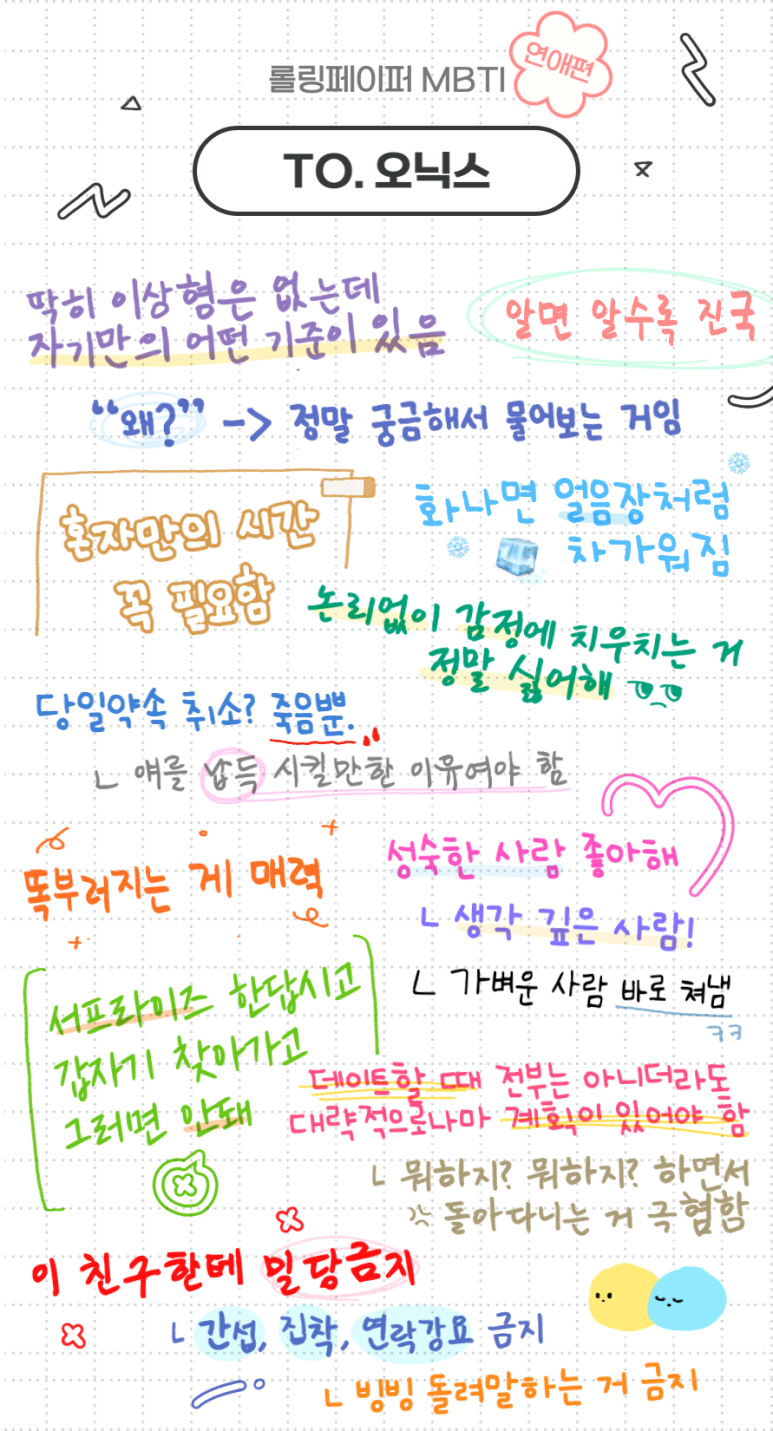 롤링페이퍼 MBTI
연애편
TO. 오닉스
딱히 이상형은 없는데
자기만의 어떤 기준이 있음
알면 알수록 진국
“왜?” -> 정말 궁금해서 물어보는 거임
혼자만의 시간
꼭 필요함
화나면 얼음장처럼
차가워짐
논리없이 감정에 치우치는 거
정말 싫어해
당일약속 취소? 죽음뿐.
ㄴ 얘를 납득 시킬만한 이유여야 함
똑부러지는 게 매력
성숙한 사람 좋아해
ㄴ 생각 깊은 사람!
ㄴ 가벼운 사람 바로 쳐냄
ㅋㅋ
서프라이즈 한답시고
갑자기 찾아가고
그러면 안돼
데이트할 때 전부는 아니더라도
대략적으로나마 계획이 있어야 함
ㄴ 뭐하지? 뭐하지? 하면서
돌아다니는 거 극혐함
이 친구한테 밀당금지
ㄴ 간섭, 집착, 연락강요 금지
ㄴ 빙빙 돌려말하는 거 금지